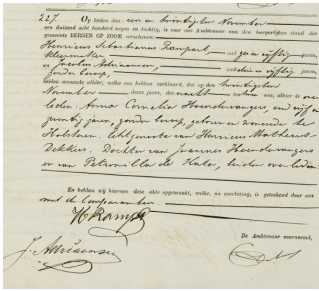 227. Op heden den een en twintigsten November
een duizend acht honderd negen en tachtig, is voor ons Ambtenaar van den burgerlijken stand der
gemeente BERGEN OP ZOOM verschenen:
Henricus Sebastianus Rampart, oud zes en vijftig jaren,
kleermaker
en Jacobus Adriaansen, oud en vijftig jaren,
zonder beroep,
beiden wonende alhier, welke ons hebben verklaard, dat op den twintigsten
November dezes jaars, des nachts ten ure, alhier is over-
leden Anna Cornelia Hoendervangers, oud vijf en
zeventig jaren, zonder beroep, geboren en wonende te
Halsteren, Echtgenoote van Henricus Mattheus
Dekkers. Dochter van Joannes Hoendervangers
en van Petronilla de Kater, beiden overleden.
En hebben wij hiervan deze akte opgemaakt, welke, na voorlezing, is geteekend door ons
met de Comparanten.
De Ambtenaar voornoemd,
J. Adriaansen